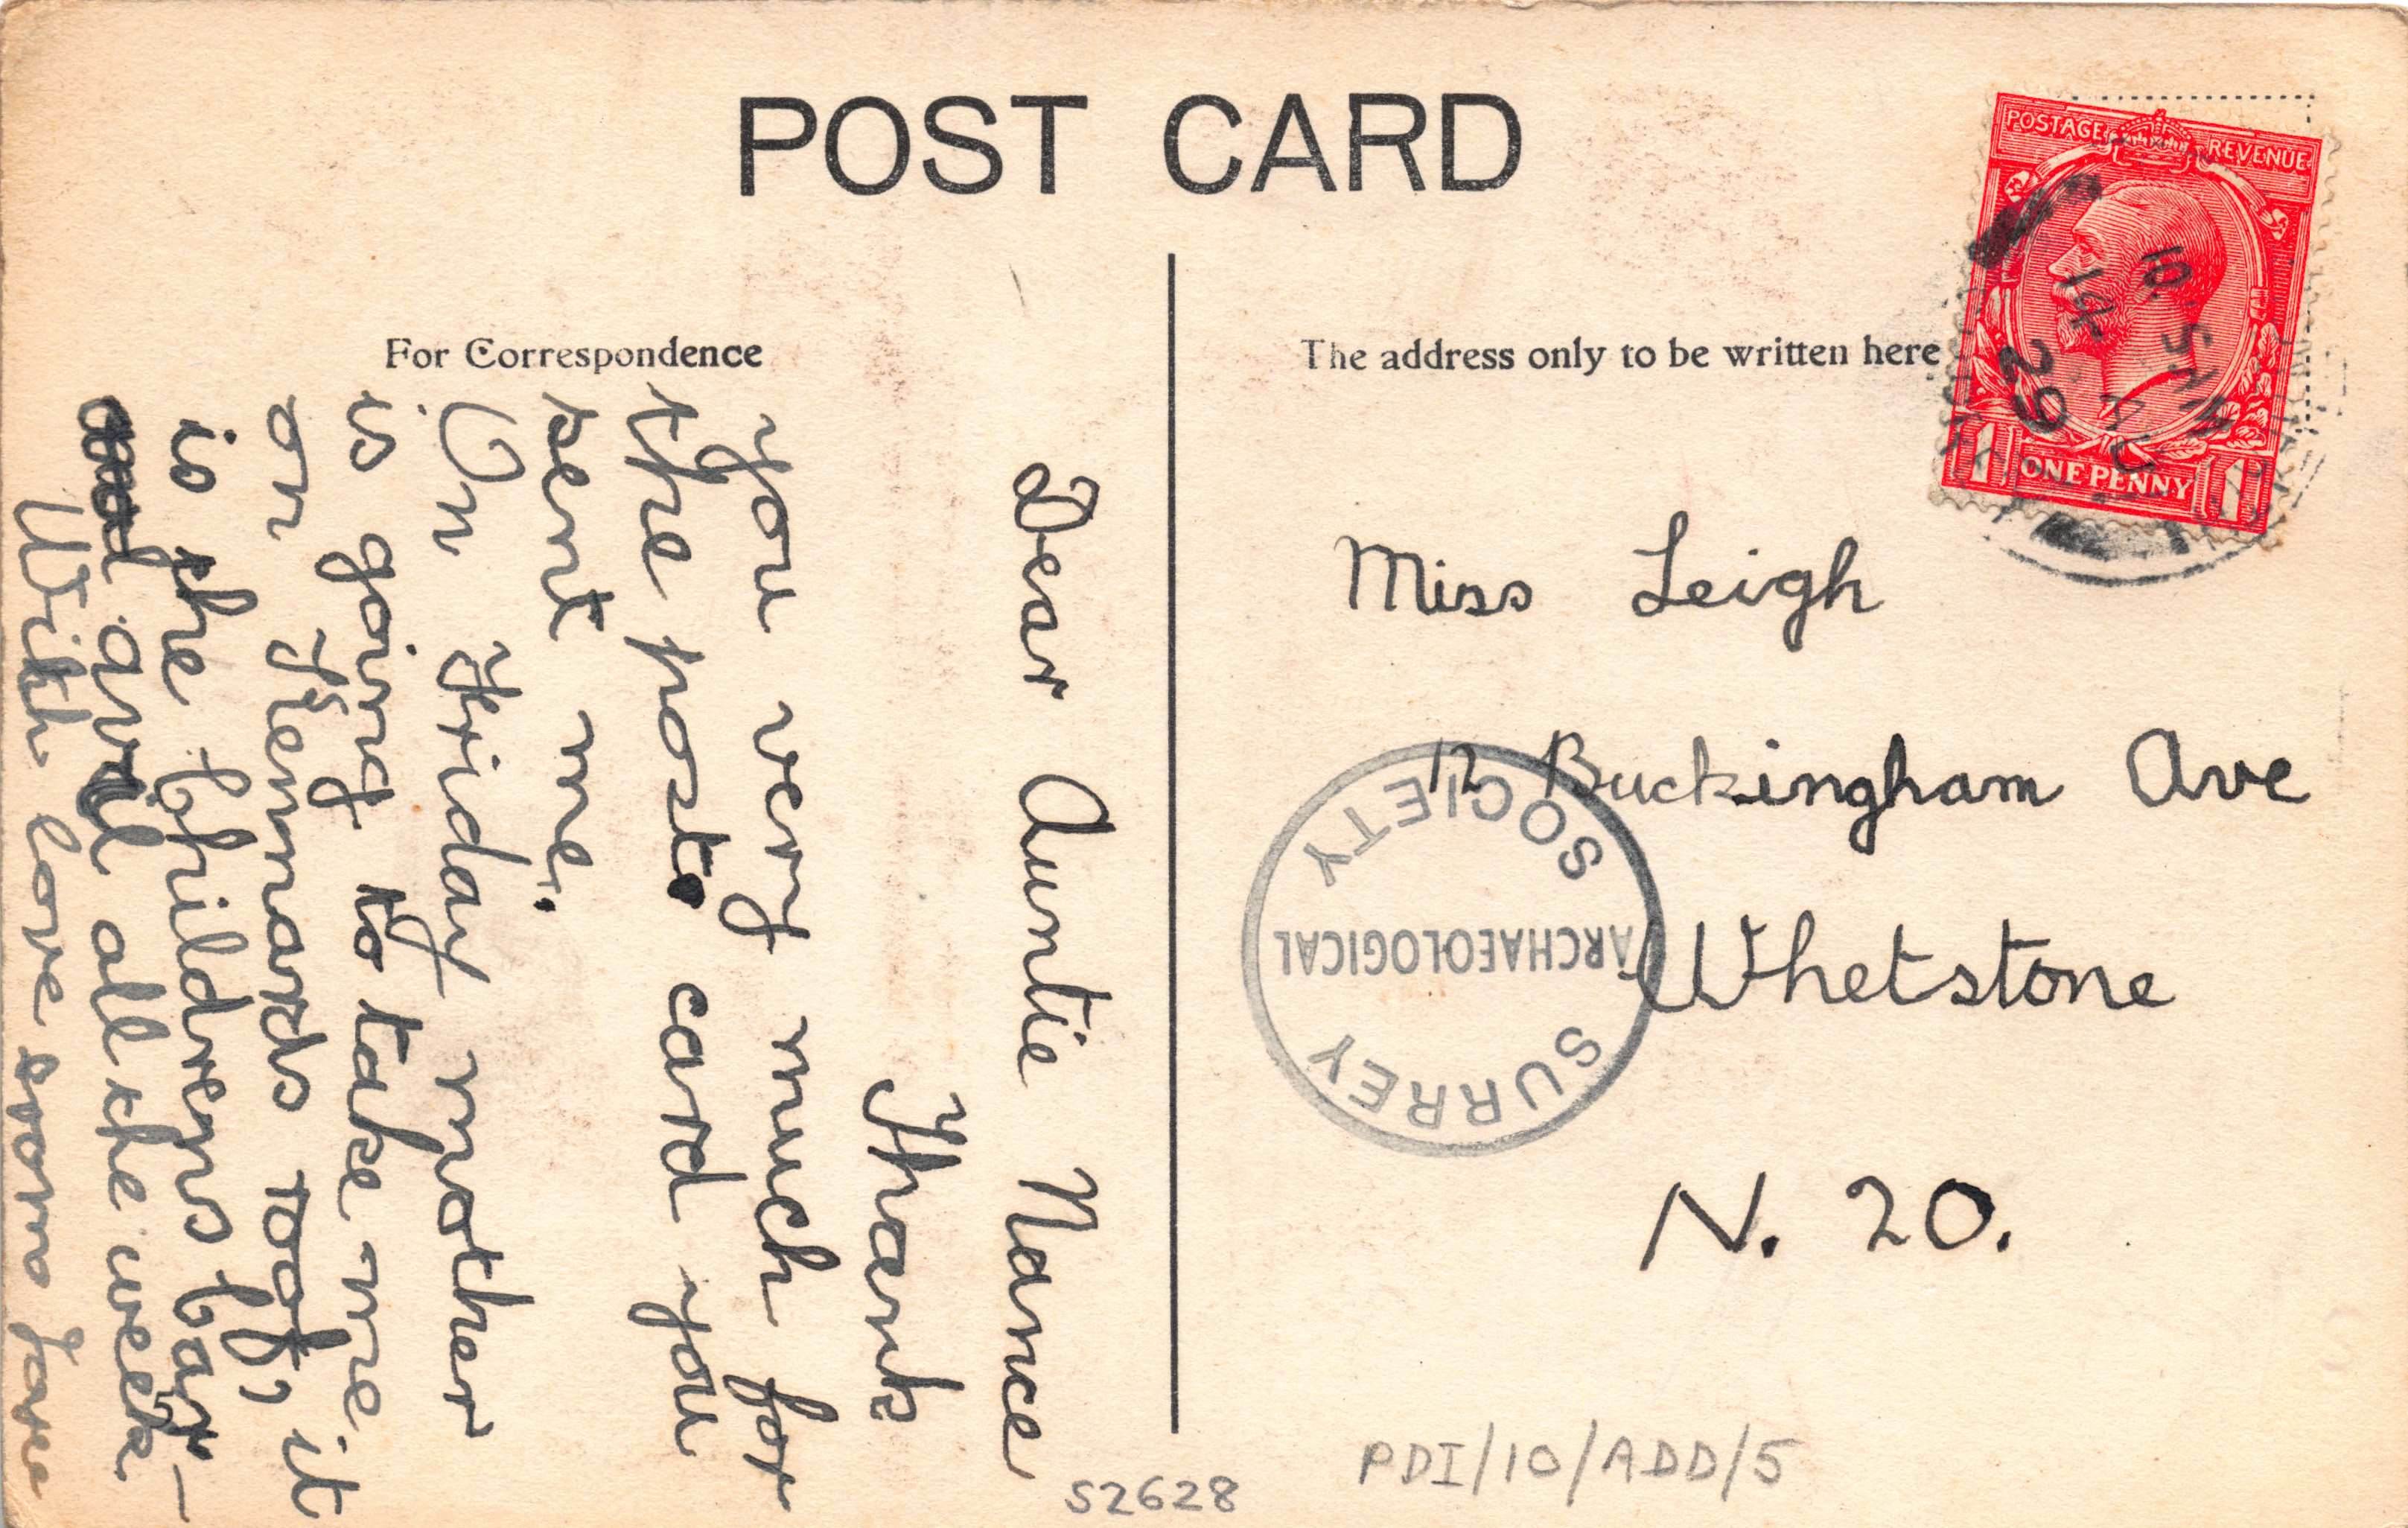 POST CARD
For Correspondence
The address only to be written here
POSTAGE REVENUE
ONE PENNY
10. 5
14
29
Dear Auntie Nance
Thank
you very much for
the post card you
sent me.
On Friday mother
is going to take me
on Jennards roof, it
is the Childrens Car-
all the week
With love from
Miss Leigh
12 Buckingham Ave
Whetstone
N. 20.
SURREY
ARCHAEOLOGICAL
SOCIETY
S2628
PDI/10/ADD/5